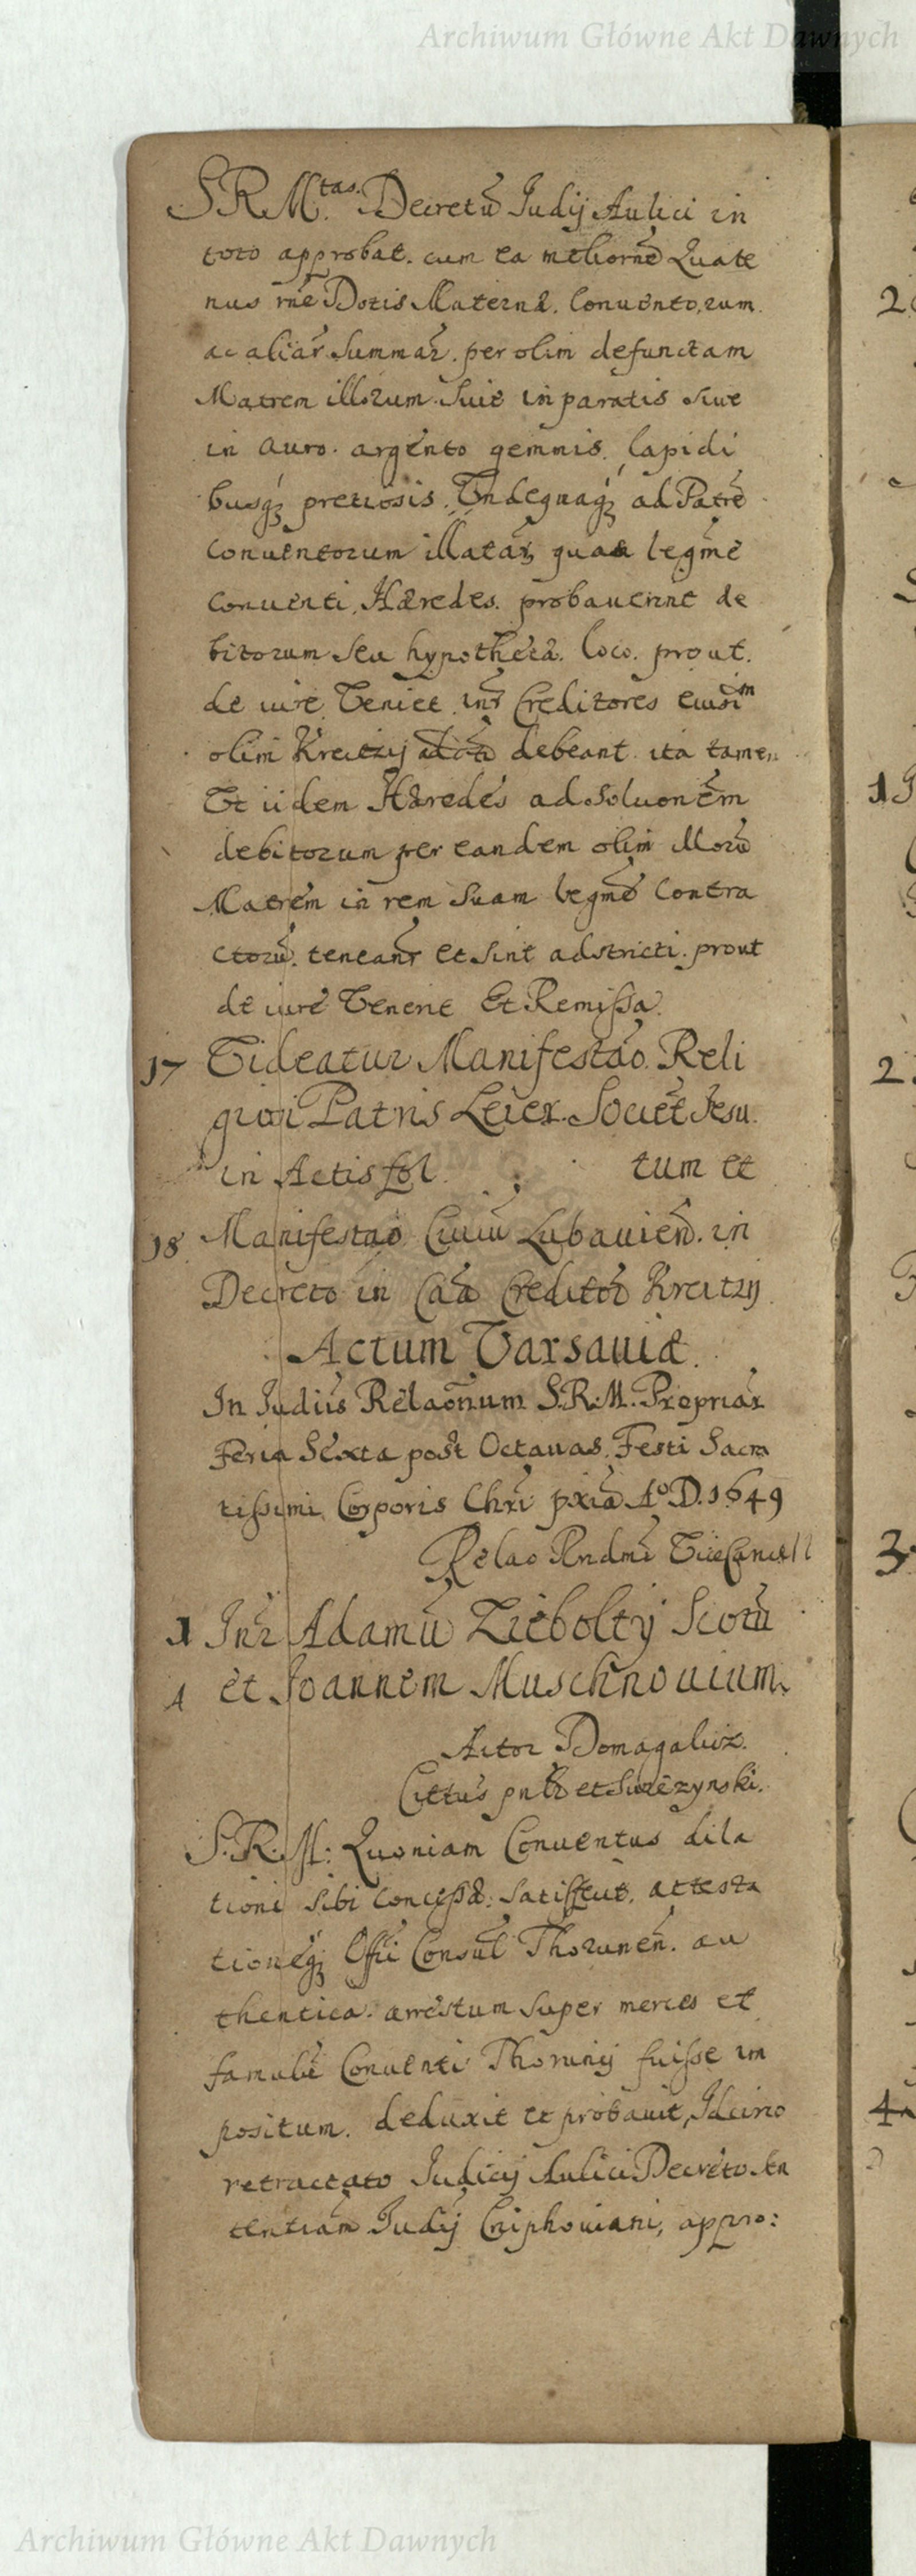 Archiwum Główne Akt Dawnych
S R M.tas Decretū Judij Aulici in
toto approbat. cum ea meliorne Quate
nus rne Dotis Maternæ. Conventorum
ac aliar summar. per olim defunctam
Matrem illorum. sive in paratis sive
in auro. argento gemmis, lapidi
busq; pretiosis. Undequaq; ad Patre
Conventorum illatar, quas legme
Conventi Hæredes. probaverint de
bitorum seu hypothecæ. loco. prout.
de iure Veniet inr Creditores eiusm
olim Kreitzij debeant. ita tamen
Ut iidem Hæredes ad solvonem
debitorum per eandem olim Illorū
Matrem in rem suam legme Contra
ctorū. teneantr et sint adstricti. prout
de iure Venerit Et Remissa.
17 Videatur Manifestao. Reli
giosi Patris Leier. Societ Jesu.
in Actis fol. tum et
18 Manifestao Civiū Lubavien. in
Decreto in Caa Creditor Kreitzij
Actum Varsaviæ.
In Judiis Relaonum S.R.M. Propriar
Feria Sexta post Octavas. Festi Sacra
tissimi Corporis Chri pxia Ao. D. 1649
Relao Rndmi ViceCancell
1 Intr Adamū Ziebolty Scotū
et Joannem Muschnovium.
A
Actor Domagalicz.
Cittus pnlr et Surczynski.
S. R. M: Quoniam Conventus dila
tioni sibi concessæ. satisfecit. attesta
tioneq; Offii Consul Thorunen. au
thentica. arrestum super merces et
famulū Conventi Thorunij fuisse im
positum. deduxit et probavit, Idcirco
retractato Judicij Aulici Decreto sen
tentiam Judij Cniphoviani, appro:
Archiwum Główne Akt Dawnych